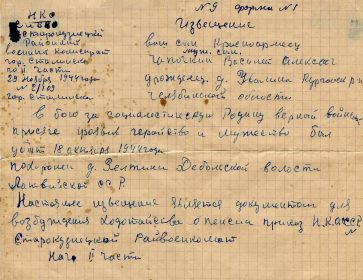 НКО
СССР
Старокузнецкий
Районный
военный комиссариат
гор. Сталинск
го II части
29 ноября 1944 года
№ 2/703
гор. Сталинск
№ 9 форма № 1
Извещение
ваш сын Красноармеец
Чапогкин Василий Алексеев
уроженец д. Убалина Курганск р-н
Челябинской области
В бою за социалистическую Родину верной воинск
присяге проявив геройство и мужество был
убит 18 сентября 1944 года
похоронен д. Зелтини Добольской волости
Латвийской ССР.
Настоящее извещение является документом для
возбуждения ходотайства о пенсии приказ Н.К.О. СССР
№
Старокузнецкий Райвоенкомат
Нач. II части